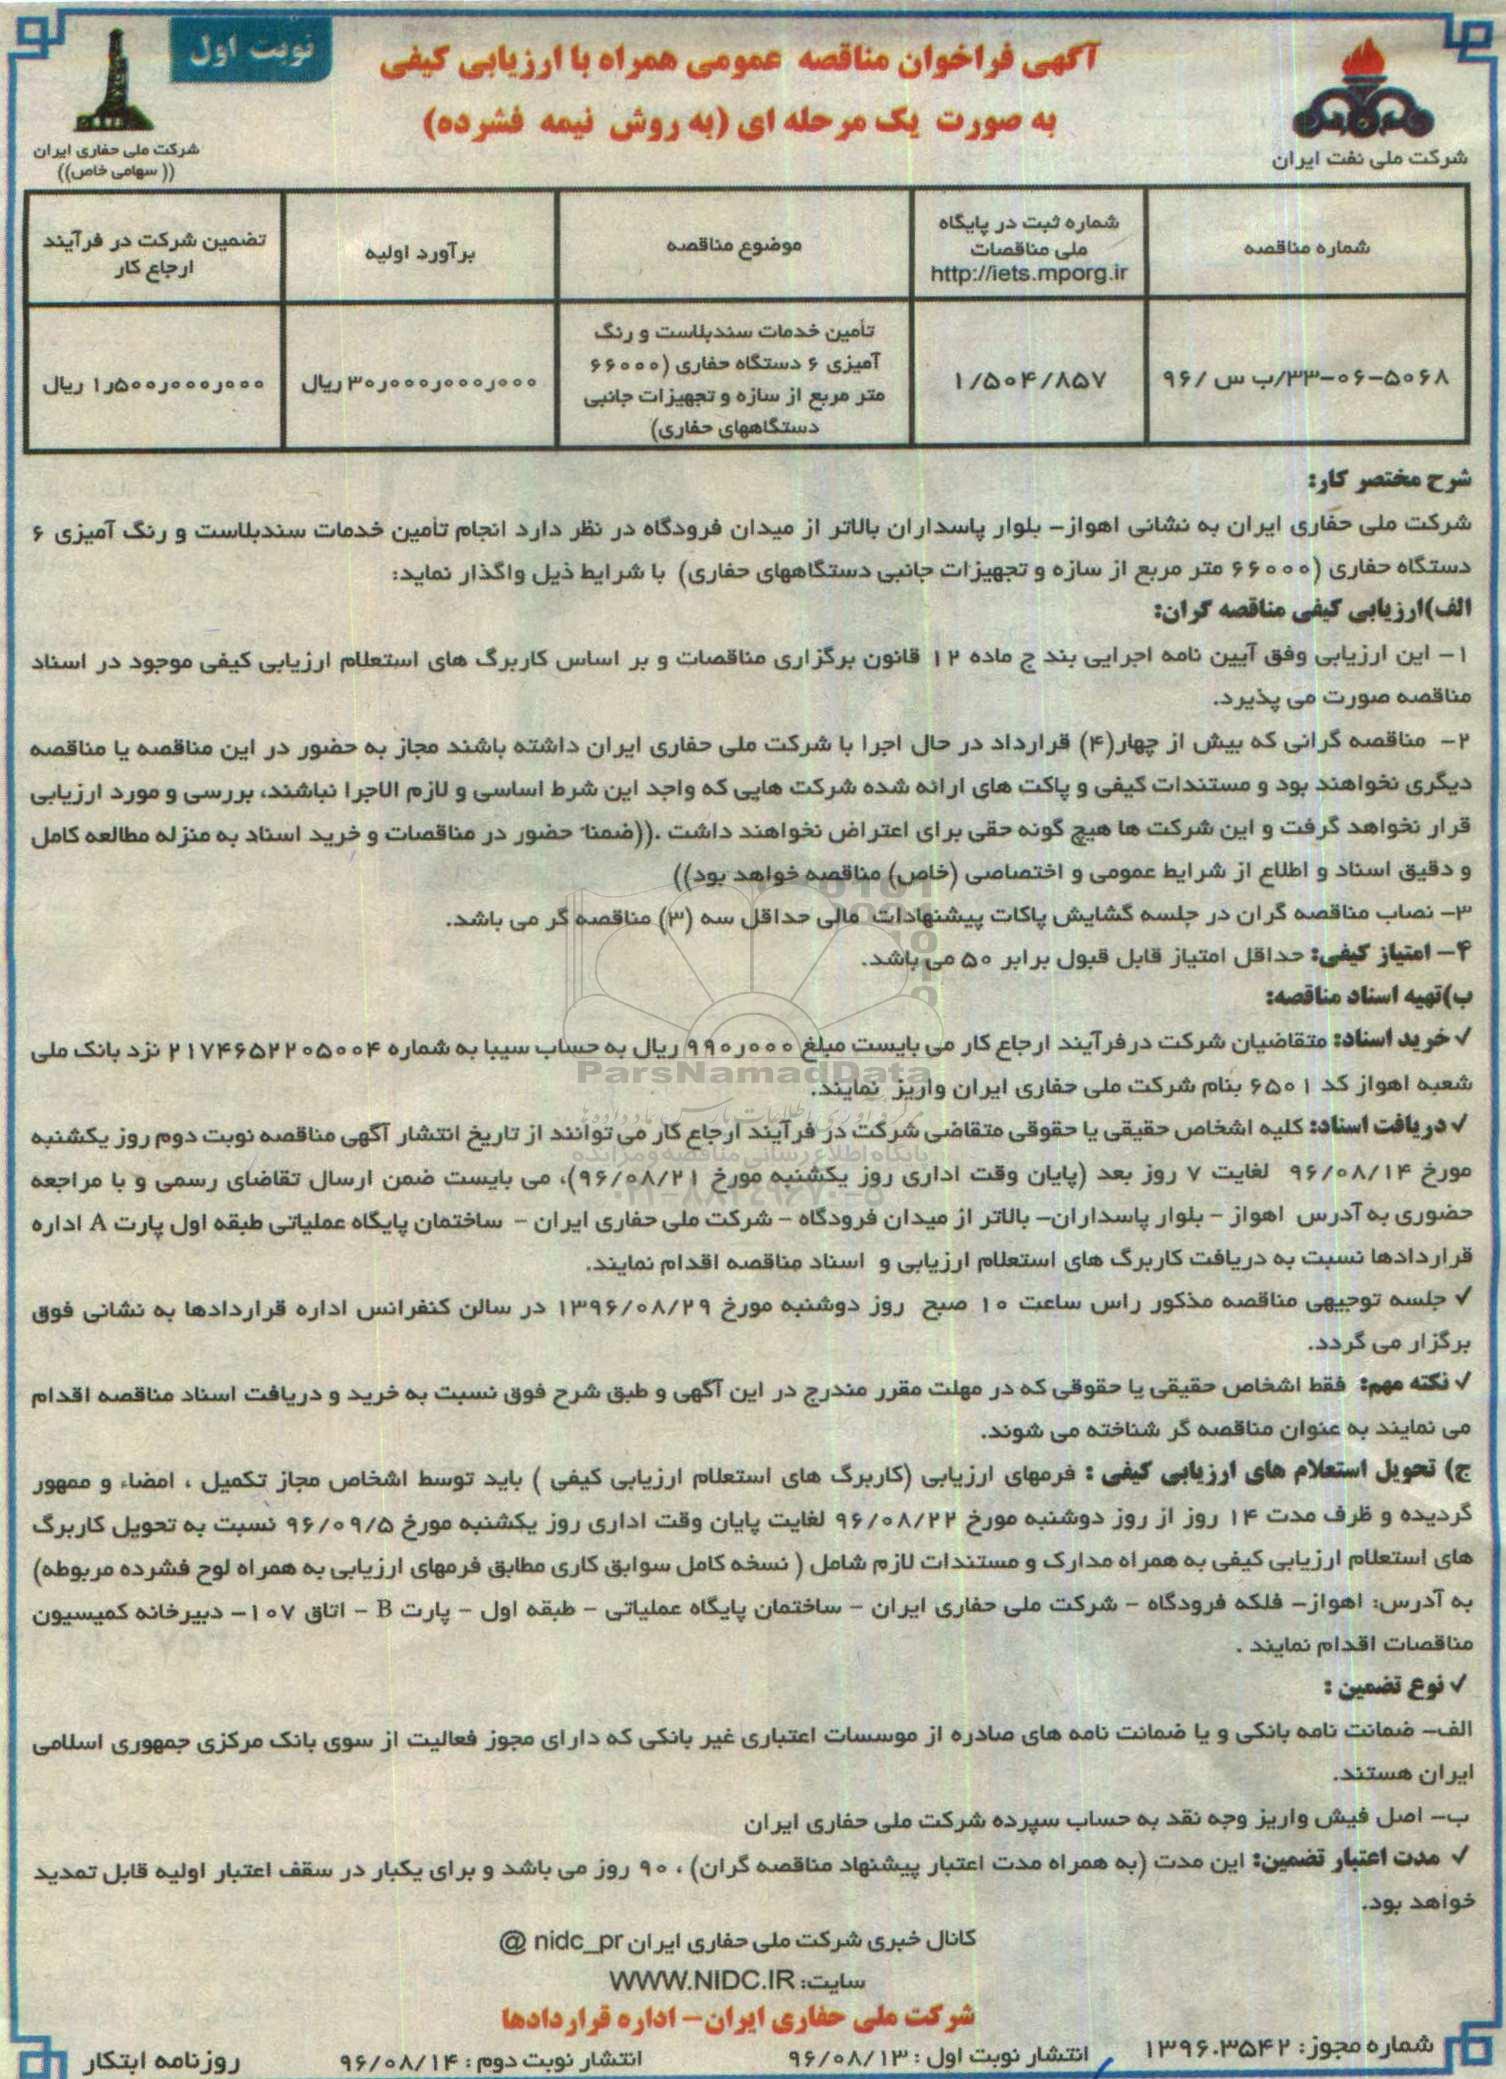 نوبت اول
آگهی فراخوان مناقصه عمومی همراه با ارزیابی کیفی
به صورت یک مرحله ای (به روش نیمه فشرده)
شرکت ملی نفت ایران
شرکت ملی حفاری ایران
(( سهامی خاص))
شماره مناقصه
شماره ثبت در پایگاه
ملی مناقصات
http://iets.mporg.ir
موضوع مناقصه
برآورد اولیه
تضمین شرکت در فرآیند
ارجاع کار
۳۳-۰۶-۵۰۶۸/ب س /۹۶
۱/۵۰۴/۸۵۷
تأمین خدمات سندبلاست و رنگ
آمیزی ۶ دستگاه حفاری (۶۶۰۰۰
متر مربع از سازه و تجهیزات جانبی
دستگاههای حفاری)
۳۰ر۰۰۰ر۰۰۰ر۰۰۰ ریال
۱ر۵۰۰ر۰۰۰ر۰۰۰ ریال
شرح مختصر کار:
شرکت ملی حفاری ایران به نشانی اهواز- بلوار پاسداران بالاتر از میدان فرودگاه در نظر دارد انجام تأمین خدمات سندبلاست و رنگ آمیزی ۶
دستگاه حفاری (۶۶۰۰۰ متر مربع از سازه و تجهیزات جانبی دستگاههای حفاری) با شرایط ذیل واگذار نماید:
الف)ارزیابی کیفی مناقصه گران:
۱- این ارزیابی وفق آیین نامه اجرایی بند ج ماده ۱۲ قانون برگزاری مناقصات و بر اساس کاربرگ های استعلام ارزیابی کیفی موجود در اسناد
مناقصه صورت می پذیرد.
۲- مناقصه گرانی که بیش از چهار(۴) قرارداد در حال اجرا با شرکت ملی حفاری ایران داشته باشند مجاز به حضور در این مناقصه یا مناقصه
دیگری نخواهند بود و مستندات کیفی و پاکت های ارائه شده شرکت هایی که واجد این شرط اساسی و لازم الاجرا نباشند، بررسی و مورد ارزیابی
قرار نخواهد گرفت و این شرکت ها هیچ گونه حقی برای اعتراض نخواهند داشت .((ضمنا" حضور در مناقصات و خرید اسناد به منزله مطالعه کامل
و دقیق اسناد و اطلاع از شرایط عمومی و اختصاصی (خاص) مناقصه خواهد بود))
۳- نصاب مناقصه گران در جلسه گشایش پاکات پیشنهادات مالی حداقل سه (۳) مناقصه گر می باشد.
۴- امتیاز کیفی: حداقل امتیاز قابل قبول برابر ۵۰ می باشد.
ب)تهیه اسناد مناقصه:
✓ خرید اسناد: متقاضیان شرکت درفرآیند ارجاع کار می بایست مبلغ ۹۹۰ر۰۰۰ ریال به حساب سیبا به شماره ۲۱۷۴۶۵۲۲۰۵۰۰۴ نزد بانک ملی
شعبه اهواز کد ۶۵۰۱ بنام شرکت ملی حفاری ایران واریز نمایند.
ParsNamadData
✓ دریافت اسناد: کلیه اشخاص حقیقی یا حقوقی متقاضی شرکت در فرآیند ارجاع کار می توانند از تاریخ انتشار آگهی مناقصه نوبت دوم روز یکشنبه
پایگاه اطلاع رسانی مناقصه و مزایده
مورخ ۹۶/۰۸/۱۴ لغایت ۷ روز بعد (پایان وقت اداری روز یکشنبه مورخ ۹۶/۰۸/۲۱)، می بایست ضمن ارسال تقاضای رسمی و با مراجعه
۰۲۱-۸۸۳۴۹۶۷۰-۵
حضوری به آدرس اهواز - بلوار پاسداران- بالاتر از میدان فرودگاه - شرکت ملی حفاری ایران - ساختمان پایگاه عملیاتی طبقه اول پارت A اداره
قراردادها نسبت به دریافت کاربرگ های استعلام ارزیابی و اسناد مناقصه اقدام نمایند.
✓ جلسه توجیهی مناقصه مذکور راس ساعت ۱۰ صبح روز دوشنبه مورخ ۱۳۹۶/۰۸/۲۹ در سالن کنفرانس اداره قراردادها به نشانی فوق
برگزار می گردد.
✓ نکته مهم: فقط اشخاص حقیقی یا حقوقی که در مهلت مقرر مندرج در این آگهی و طبق شرح فوق نسبت به خرید و دریافت اسناد مناقصه اقدام
می نمایند به عنوان مناقصه گر شناخته می شوند.
ج) تحویل استعلام های ارزیابی کیفی : فرمهای ارزیابی (کاربرگ های استعلام ارزیابی کیفی ) باید توسط اشخاص مجاز تکمیل ، امضاء و ممهور
گردیده و ظرف مدت ۱۴ روز از روز دوشنبه مورخ ۹۶/۰۸/۲۲ لغایت پایان وقت اداری روز یکشنبه مورخ ۹۶/۰۹/۵ نسبت به تحویل کاربرگ
های استعلام ارزیابی کیفی به همراه مدارک و مستندات لازم شامل ( نسخه کامل سوابق کاری مطابق فرمهای ارزیابی به همراه لوح فشرده مربوطه)
به آدرس: اهواز- فلکه فرودگاه - شرکت ملی حفاری ایران - ساختمان پایگاه عملیاتی - طبقه اول - پارت B - اتاق ۱۰۷- دبیرخانه کمیسیون
مناقصات اقدام نمایند .
✓ نوع تضمین :
الف- ضمانت نامه بانکی و یا ضمانت نامه های صادره از موسسات اعتباری غیر بانکی که دارای مجوز فعالیت از سوی بانک مرکزی جمهوری اسلامی
ایران هستند.
ب- اصل فیش واریز وجه نقد به حساب سپرده شرکت ملی حفاری ایران
✓ مدت اعتبار تضمین: این مدت (به همراه مدت اعتبار پیشنهاد مناقصه گران) ، ۹۰ روز می باشد و برای یکبار در سقف اعتبار اولیه قابل تمدید
خواهد بود.
کانال خبری شرکت ملی حفاری ایران nidc_pr @
سایت: WWW.NIDC.IR
شرکت ملی حفاری ایران- اداره قراردادها
شماره مجوز: ۱۳۹۶.۳۵۴۲
انتشار نوبت اول : ۹۶/۰۸/۱۳
انتشار نوبت دوم : ۹۶/۰۸/۱۴
روزنامه ابتکار